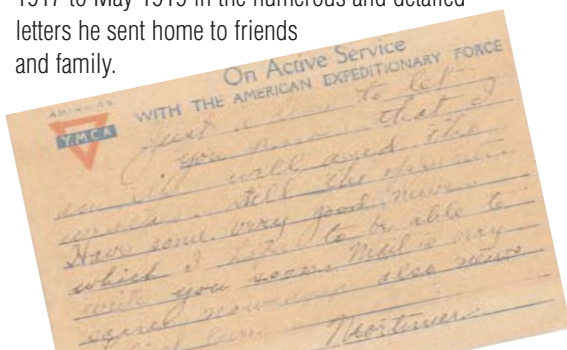 1917 to May 1919 in the numerous and detailed
letters he sent home to friends
and family.
On Active Service
WITH THE AMERICAN EXPEDITIONARY FORCE
AMERICAN
Y.M.C.A
Just a line to let
you know that I
am still well and the
Have some very good news
which I hope to be able to
write you soon. Mail is very
scarce nowadays also news
Mortimer